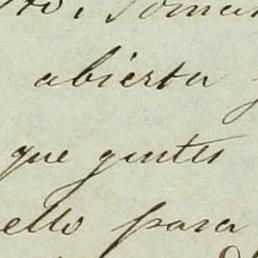 abierta
que gentes
ello para